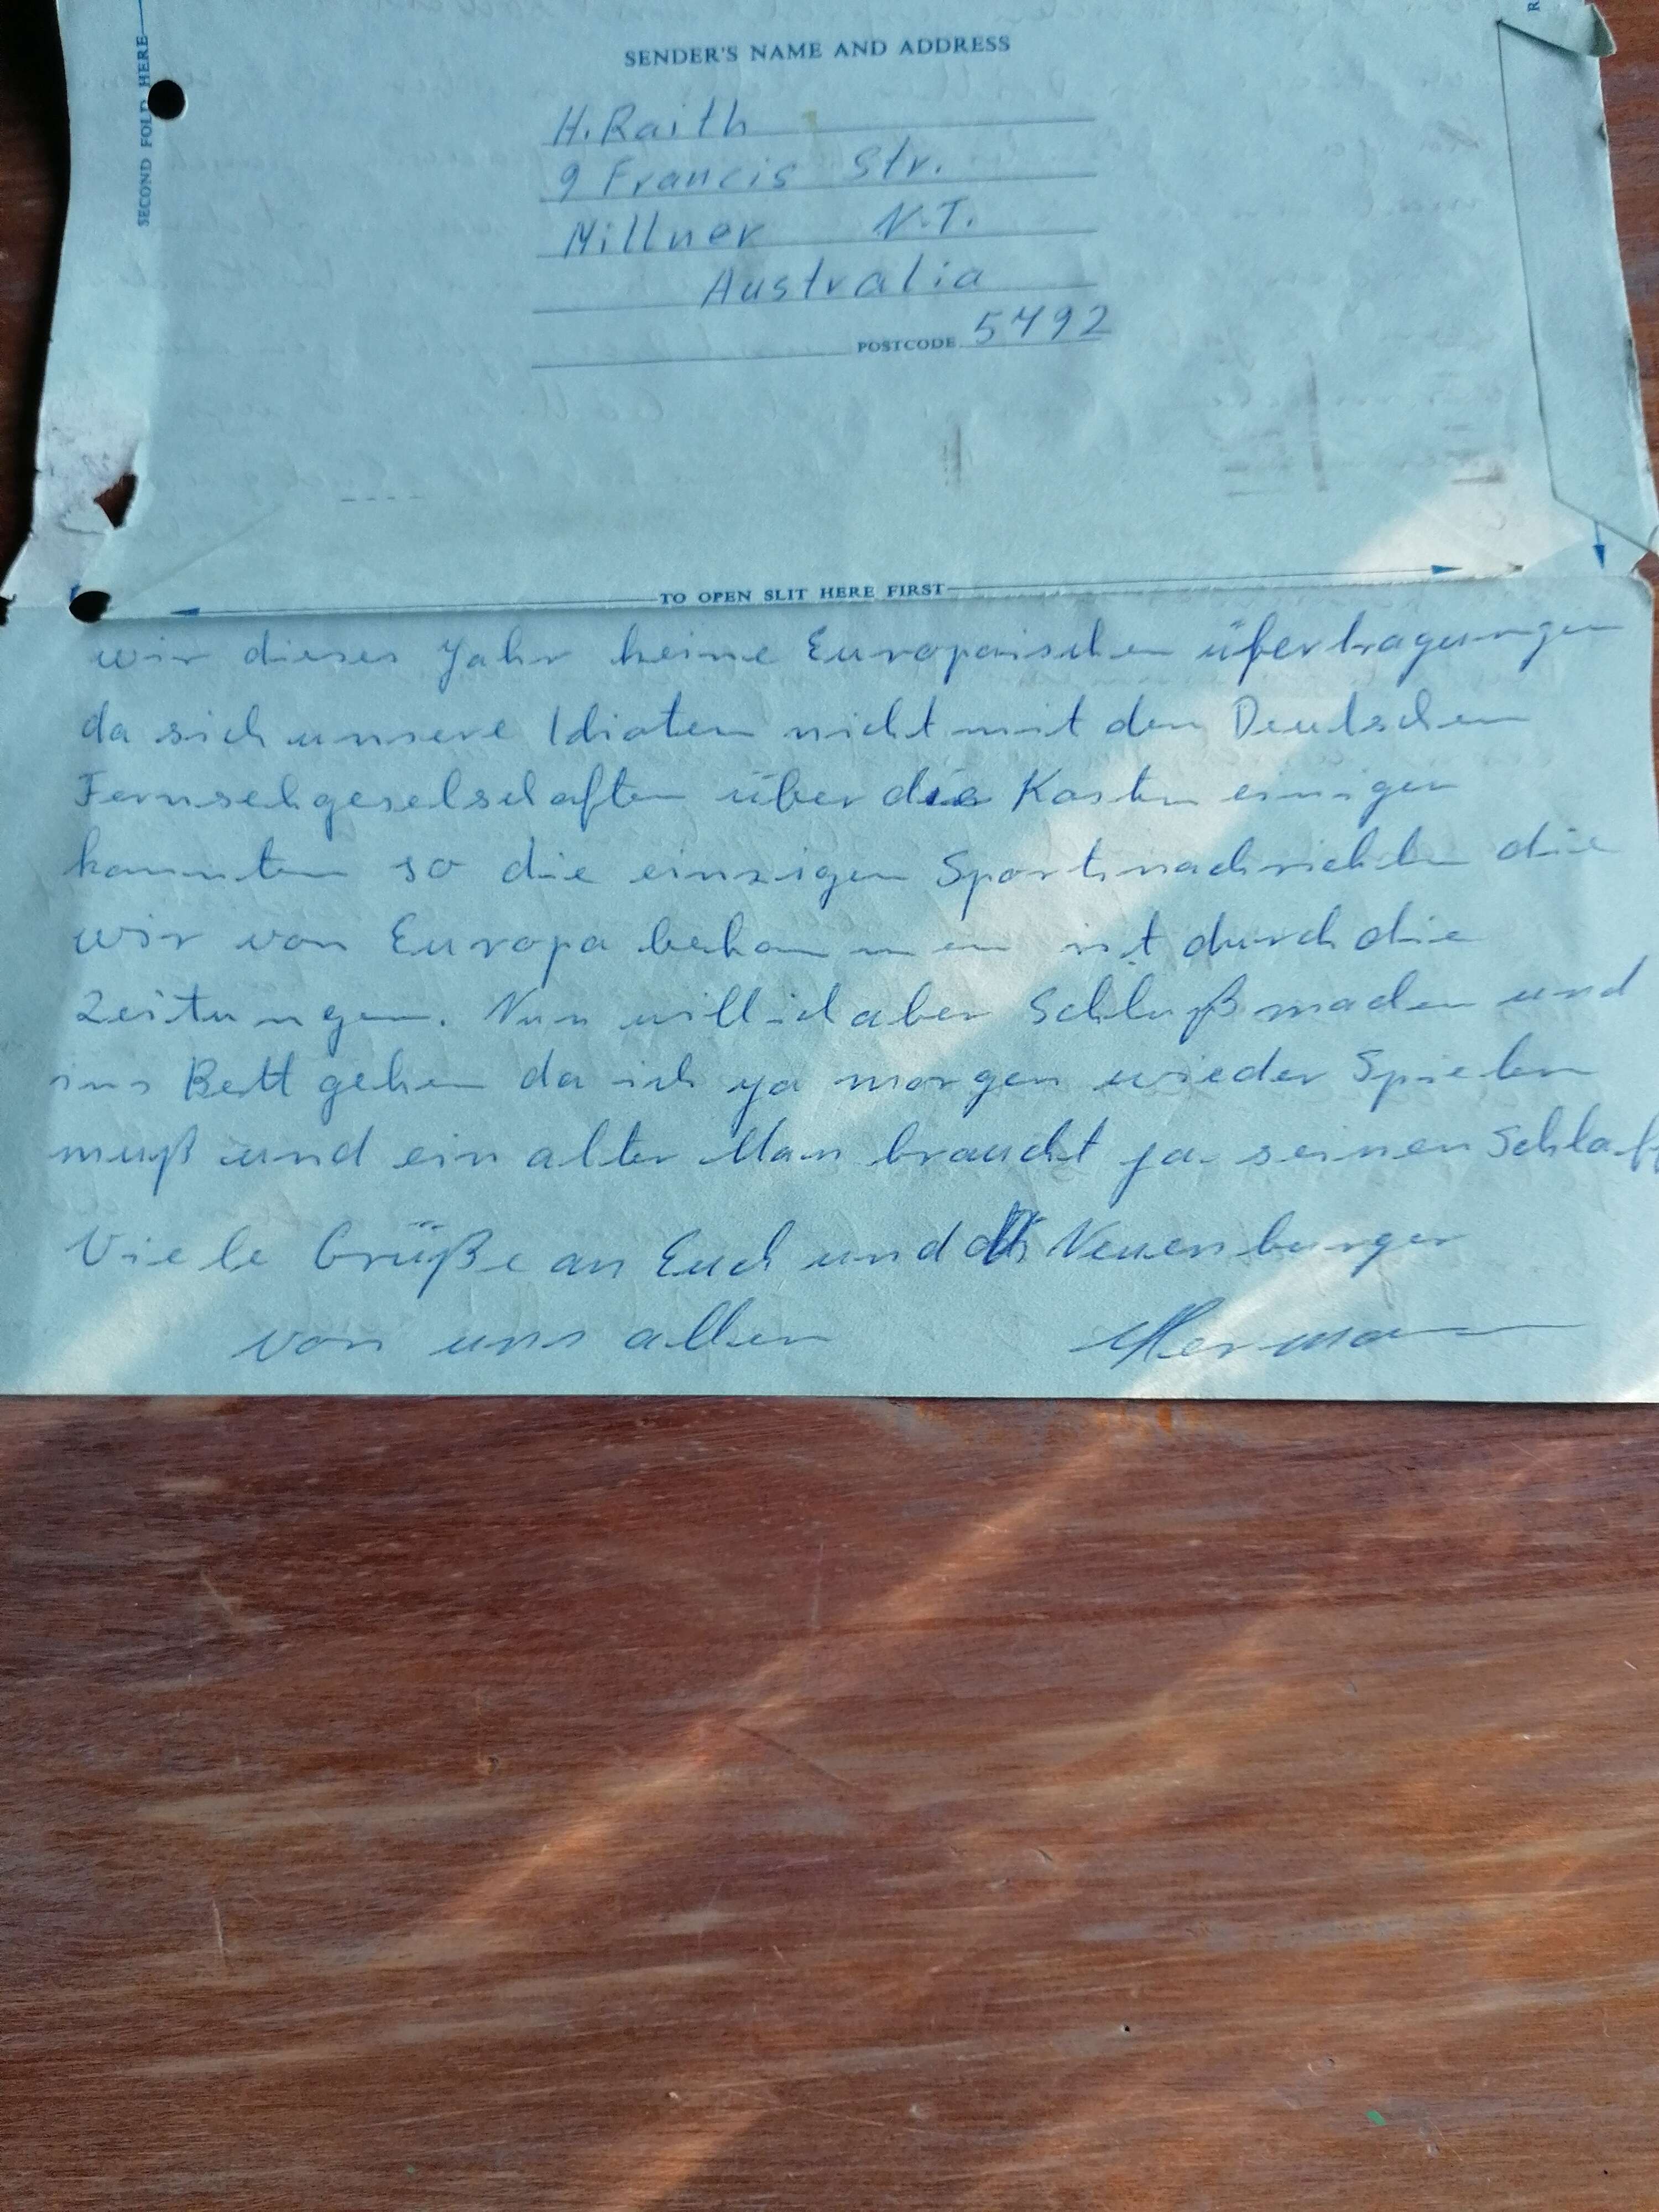 SECOND FOLD HERE
SENDER'S NAME AND ADDRESS
H. Raith
9 Francis Str.
Millner N.T.
Australia
POSTCODE 5792
TO OPEN SLIT HERE FIRST
wir dieses Jahr keine Europaischen übertragungen
da sich unsere Idioten nicht mit den Deutschen
Fernsehgeselschaften über die Kosten einigen
konnten so die einzigen Sportnachrichten die
wir von Europa bekommen ist durch die
Zeitungen. Nun will ich aber Schluß machen und
ins Bett gehen da ich ja morgen wieder Spielen
muß und ein alter Man braucht ja seinen Schlaf
Viele Grüße an Euch und Neuenburger
von uns allen Hermann